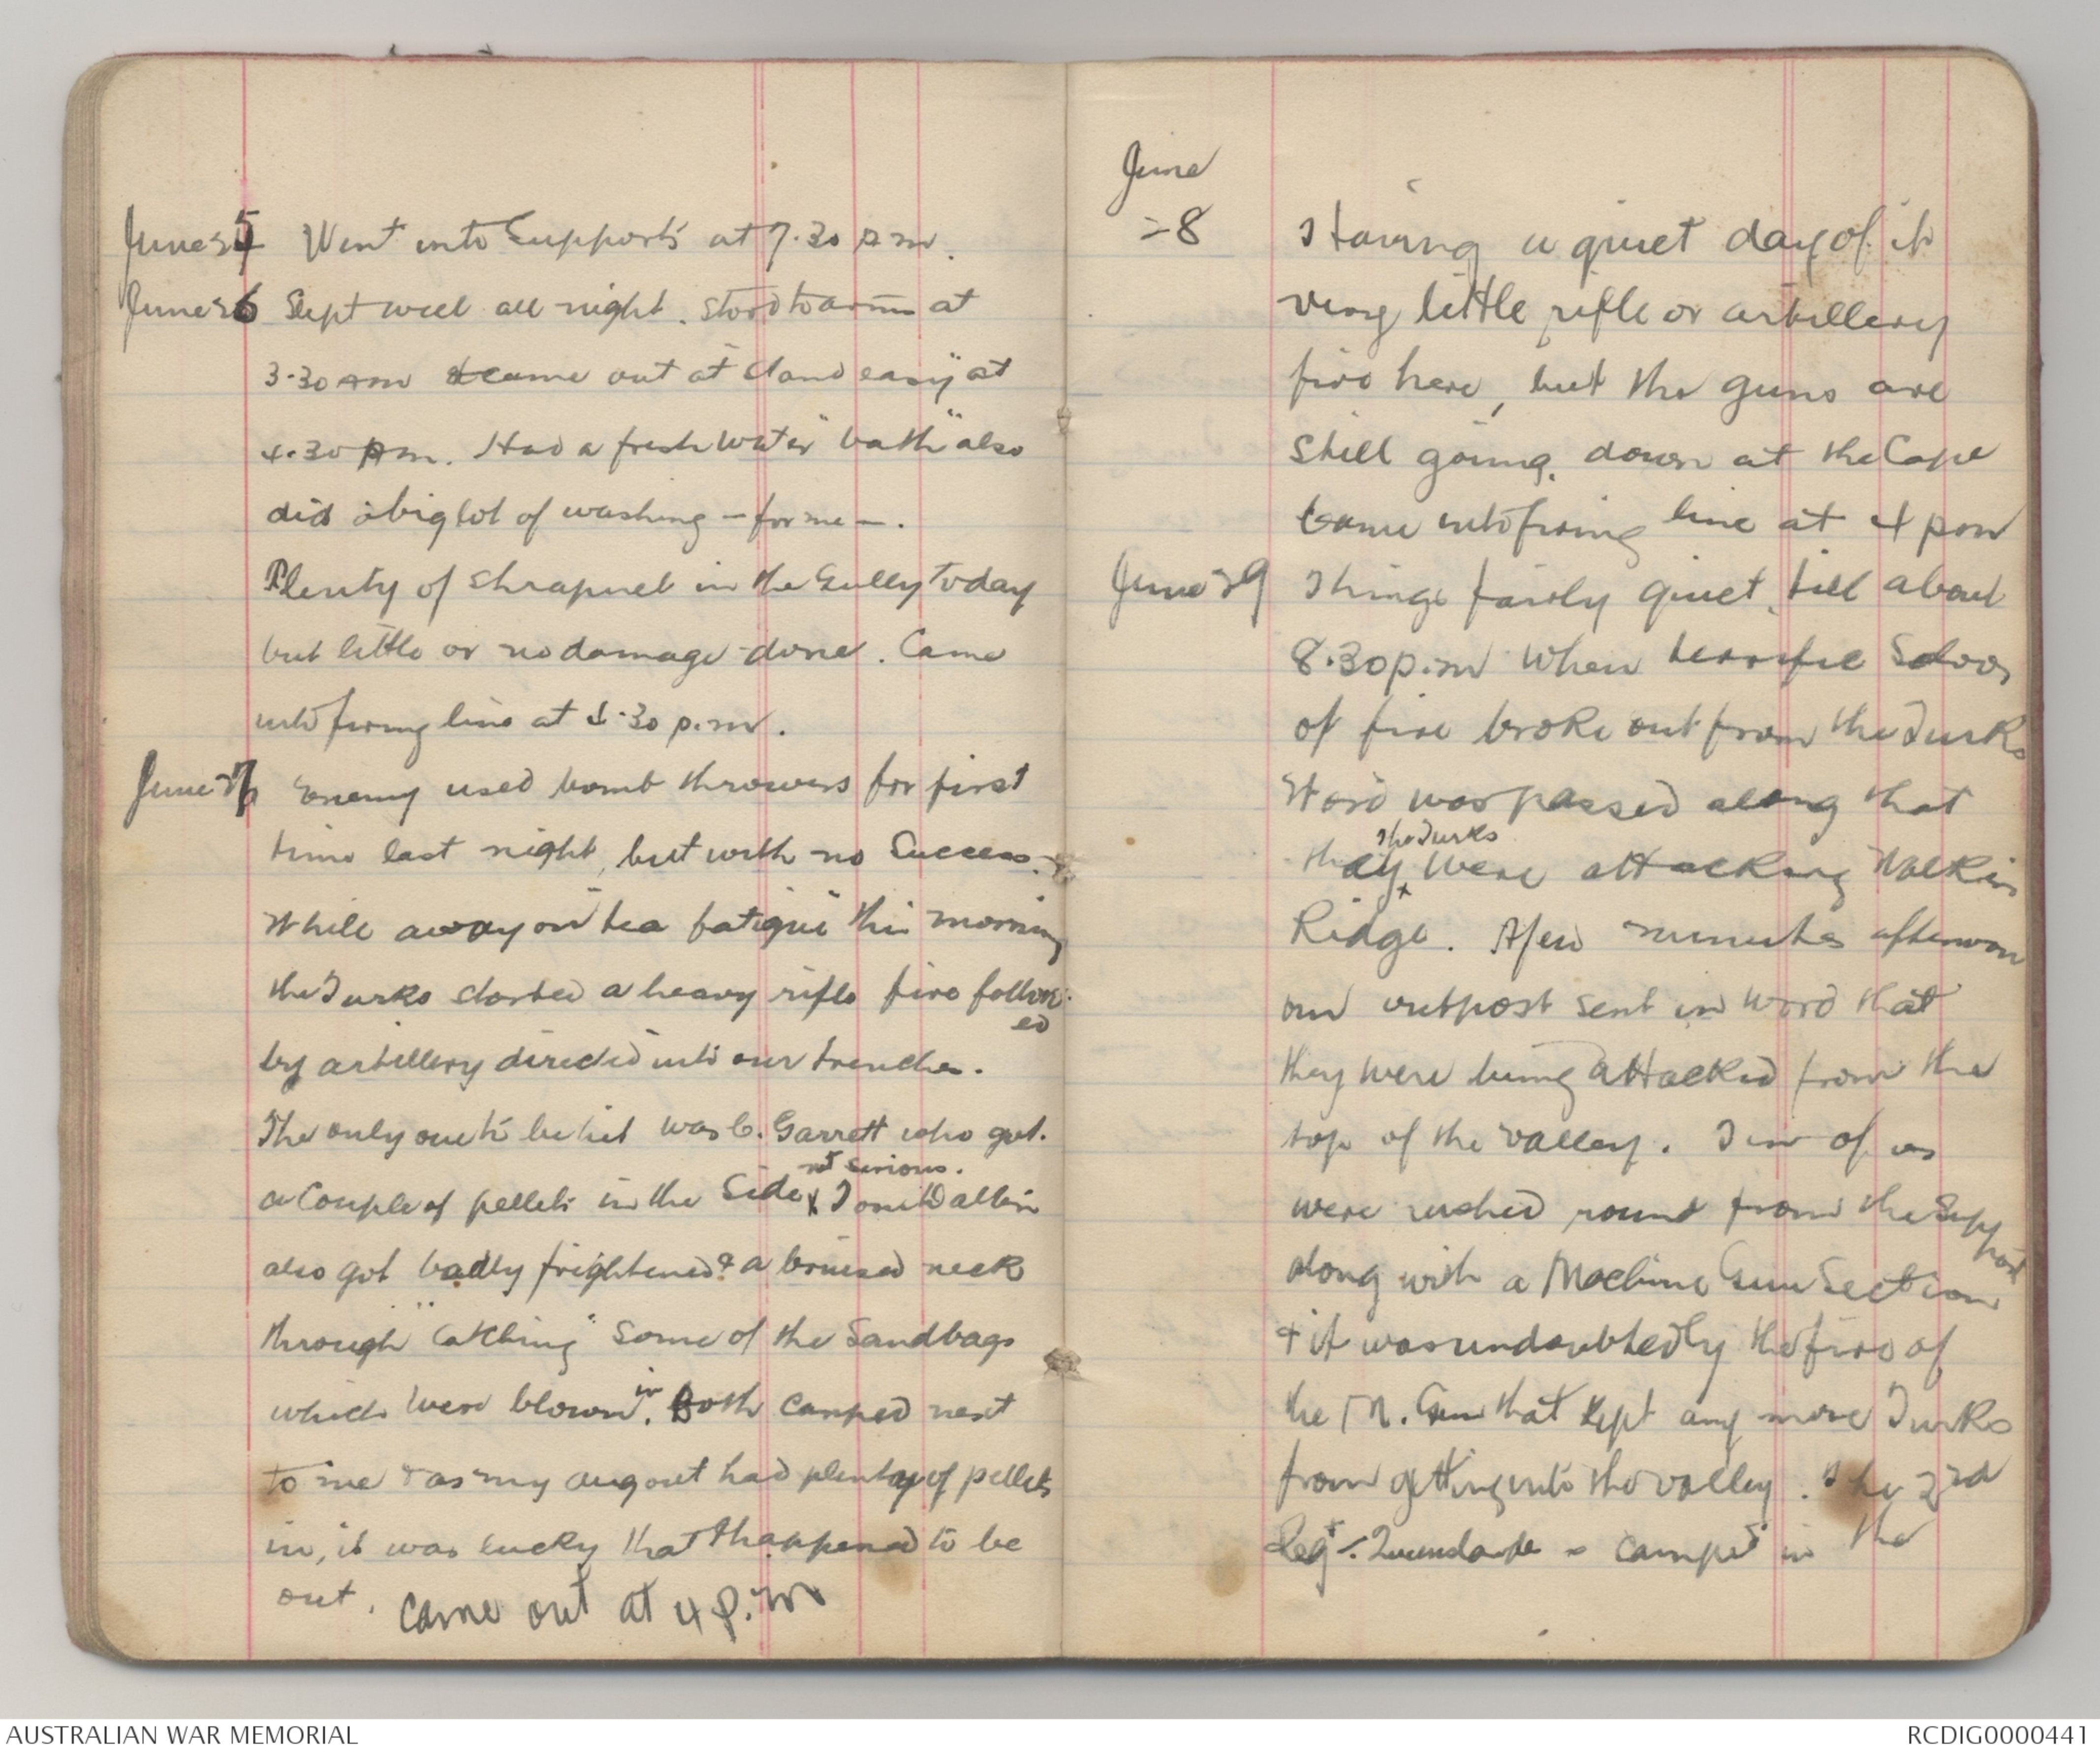 June 25 Went into Supports at 7.30 p m.
June 26 Slept well all night. Stood to arms at
3.30 am & came out at stand easy" at
4.30 Am. Had a fresh water "bath" also
did a big lot of washing - for me -.
Plenty of shrapnel in the Gully today
but little or no damage done. Came
into firing line at 3.30 p.m.
June 27 Enemy used bomb throwers for first
time last night, but with no Success.
While away on tea fatigue this morning
the Turks started a heavy rifle fire follow-
ed
by artillery directed into our trenches.
The only one to be hit was C. Garrett who got
not serious.
a Couple of pellets in the Side x Tom
also got badly frightened & a bruised neck
through "catching" some of the Sandbags
which were blown in. Both camped next
to me & as my dugout had plenty of pellets
in, it was lucky that I happened to be
out. Came out at 4 p.m
June
28 Having a quiet day of it
very little rifle or artillery
fire here, but the guns are
still going, down at the Cape
Came into firing line at 4 pm
June 29 Things fairly quiet, till about
8.30 p.m when terrific
of fire broke out from the Turks
Word was passed along that
The Turks
they x were attacking Walkers
Ridge. A few minutes afterwards
our outpost sent in word that
they were being attacked from the
top of the valley. Ten of us
were rushed round from the Support
along with a Machine Gun Section
& it was undoubtedly the fire of
the M. Gun that kept any more Turks
from getting into the valley. The 2nd
Regt. - camped in the
AUSTRALIAN WAR MEMORIAL
RCDIG0000441